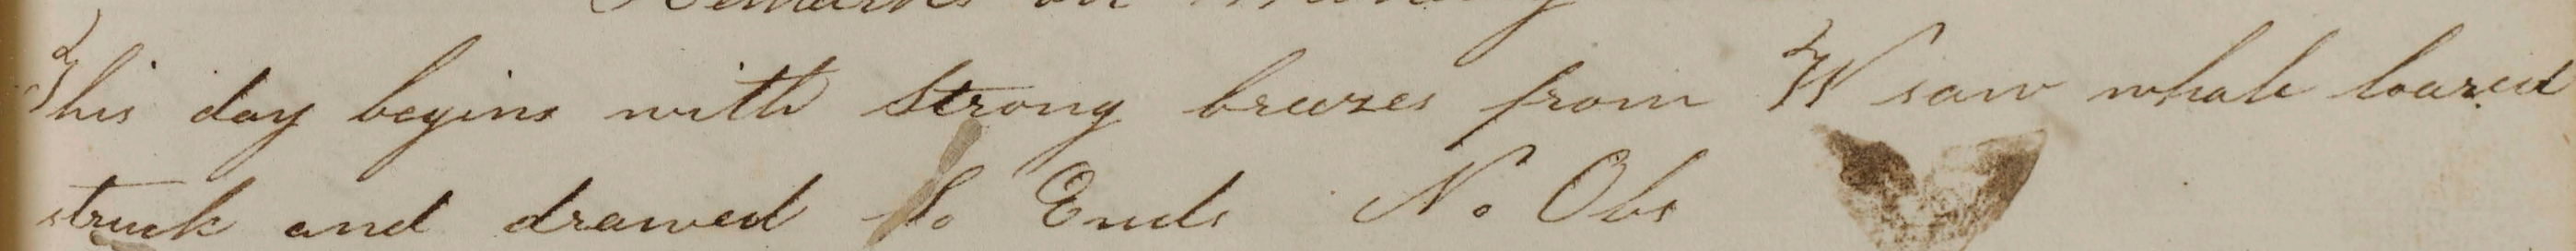 Remarks on Monday
This day begins with Strong breezes from W saw whale loared
struck and drawed So Ends No Obs